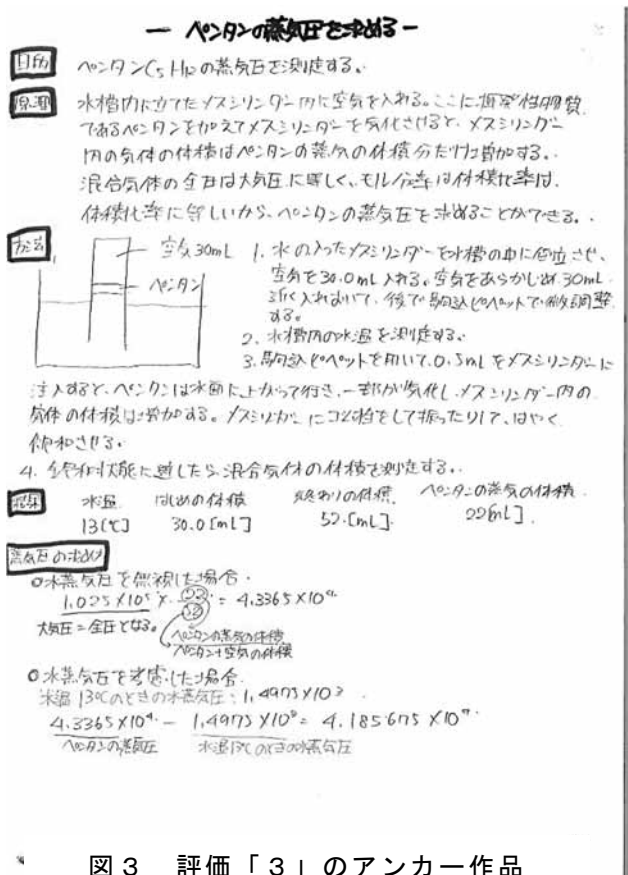 — ペンタンの蒸気圧を求める —
目的 ペンタンC5H12の蒸気圧を測定する。
原理 水槽内に立てたメスシリンダー内に空気を入れる。ここに揮発性物質
であるペンタンを加えてメスシリンダーを気化させると、メスシリンダー
内の気体の体積はペンタンの蒸気の体積分だけ増加する。
混合気体の全圧は大気圧に等しく、モル分率は体積比率は、
体積比率に等しいから、ペンタンの蒸気圧を求めることができる。
方法
空気30mL
ペンタン
1. 水の入ったメスシリンダーを水槽の中に倒立させ、
空気を30.0mL入れる。空気をあらかじめ30mL
近く入れおいて、後で駒込ピペットで微調整
する。
2. 水槽内の水温を測定する。
3. 駒込ピペットを用いて、0.5mLをメスシリンダーに
注入すると、ペンタンは水面に上がって行き、一部が気化し、メスシリンダー内の
気体の体積は増加する。メスシリンダーにゴム栓をして振ったりして、はやく
飽和させる。
4. 飽和状態に達したら混合気体の体積を測定する。
結果 水温 はじめの体積 終わりの体積 ペンタンの蒸気の体積
13[℃] 30.0[mL] 52.[mL] 22[mL]
蒸気圧の求め方
○水蒸気圧を無視した場合
1.025×10⁵ × 22/52 = 4.3365×10⁴
大気圧=全圧となる。
ペンタンの蒸気の体積
ペンタン+空気の体積
○水蒸気圧を考慮した場合
水温13℃のときの水蒸気圧:1.4973×10³
4.3365×10⁴ − 1.4973×10³ = 4.185675×10⁴
ペンタンの蒸気圧 水温13℃のときの水蒸気圧
図3 評価「3」のアンカー作品